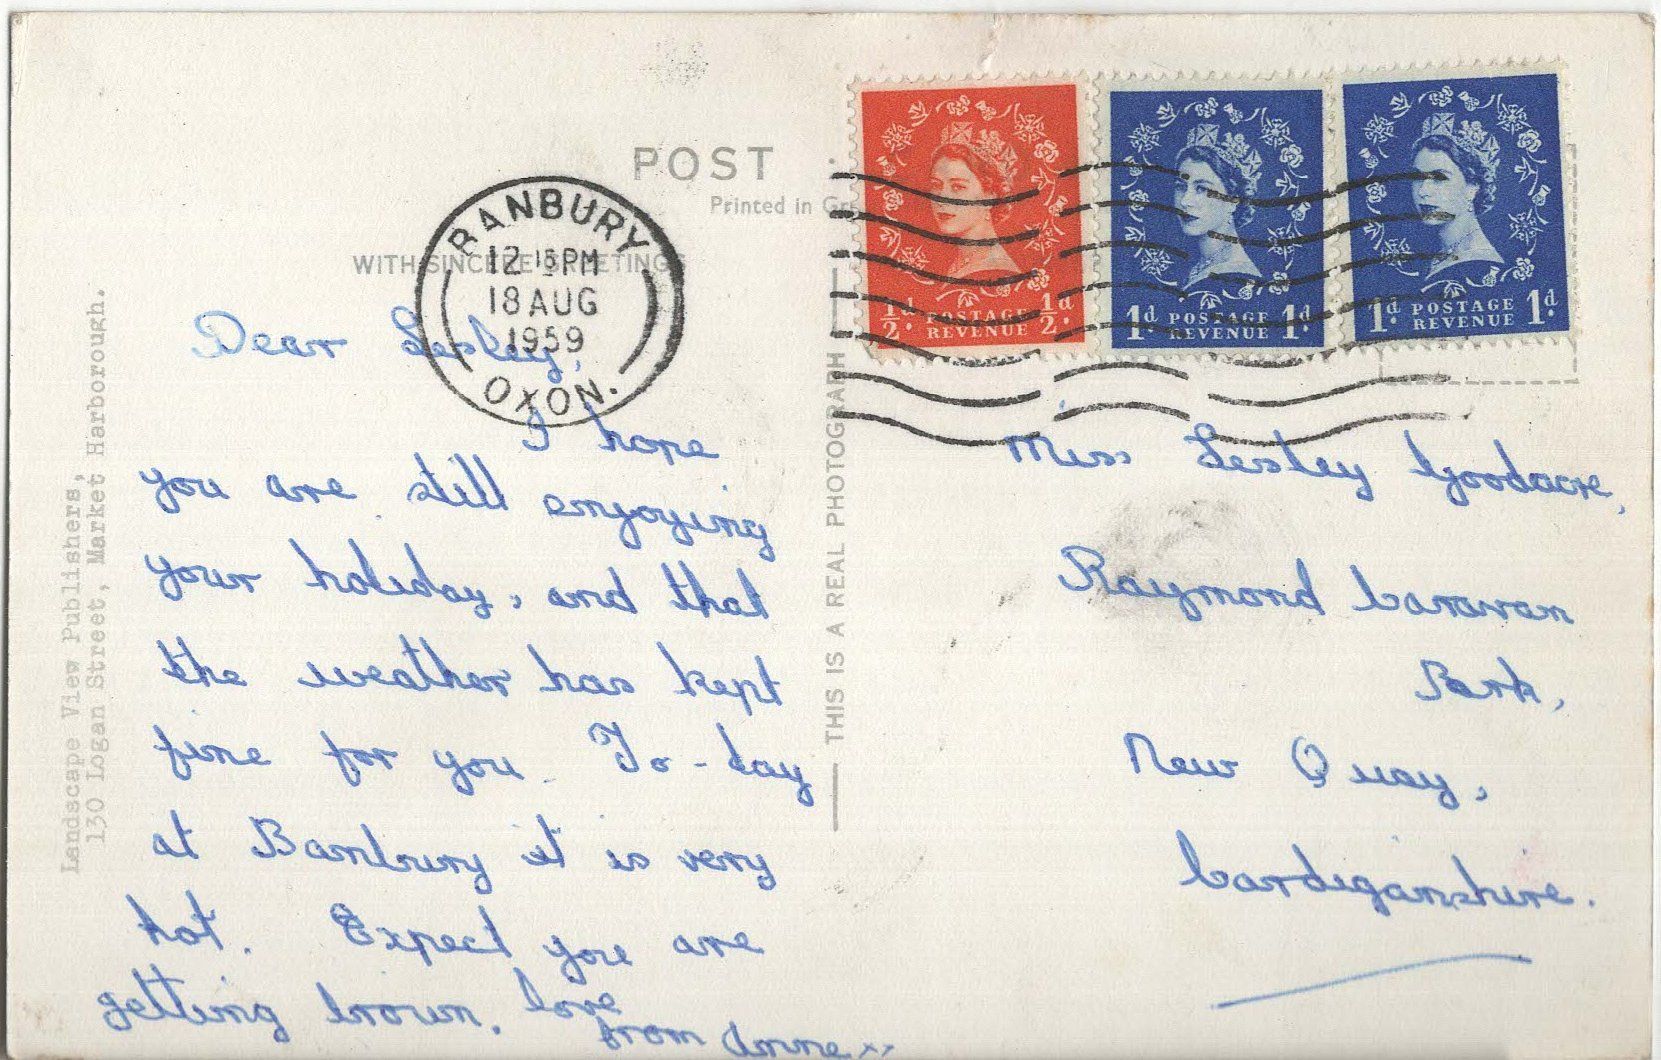 POST
Printed in Gre
WITH SINCERE GREETINGS
BANBURY
12 15 PM
18 AUG
1959
OXON.
½d. POSTAGE ½d.
REVENUE
1d. POSTAGE 1d.
REVENUE
1d. POSTAGE 1d.
REVENUE
Landscape View Publishers,
130 Logan Street, Market Harborough.
THIS IS A REAL PHOTOGRAPH
Dear Lesley,
I hope
you are still enjoying
your holiday, and that
the weather has kept
fine for you. To-day
at Banbury it is very
hot. Expect you are
getting brown. love
from Anne xx
Miss Lesley Goodacre,
Raymond Caravan
Park,
New Quay,
Cardiganshire.